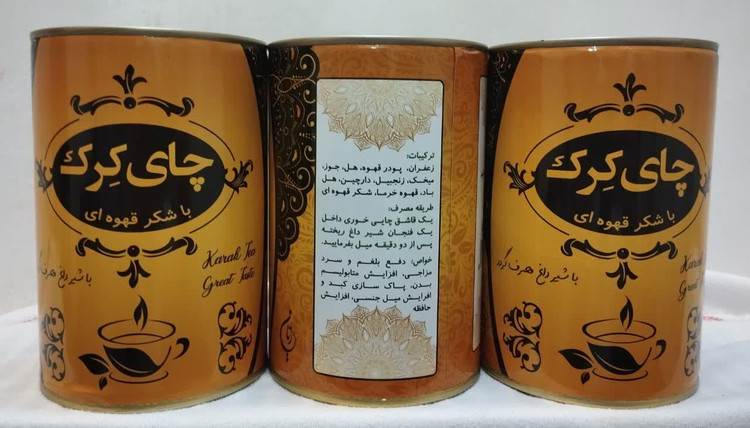 چای کرک
با شکر قهوه ای
Karak Tea
Great Taste
با شیر داغ صرف گردد
ترکیبات:
زعفران، پودر قهوه، هل، جوز،
میخک، زنجبیل، دارچین، هل
باد، قهوه خرما، شکر قهوه ای
طریقه مصرف:
یک قاشق چایی خوری داخل
یک فنجان شیر داغ ریخته
پس از دو دقیقه میل بفرمایید.
خواص: دفع بلغم و سرد
مزاجی، افزایش متابولیسم
بدن، پاک سازی کبد و
افزایش میل جنسی، افزایش
حافظه
چای کرک
با شکر قهوه ای
با شیر داغ صرف گردد